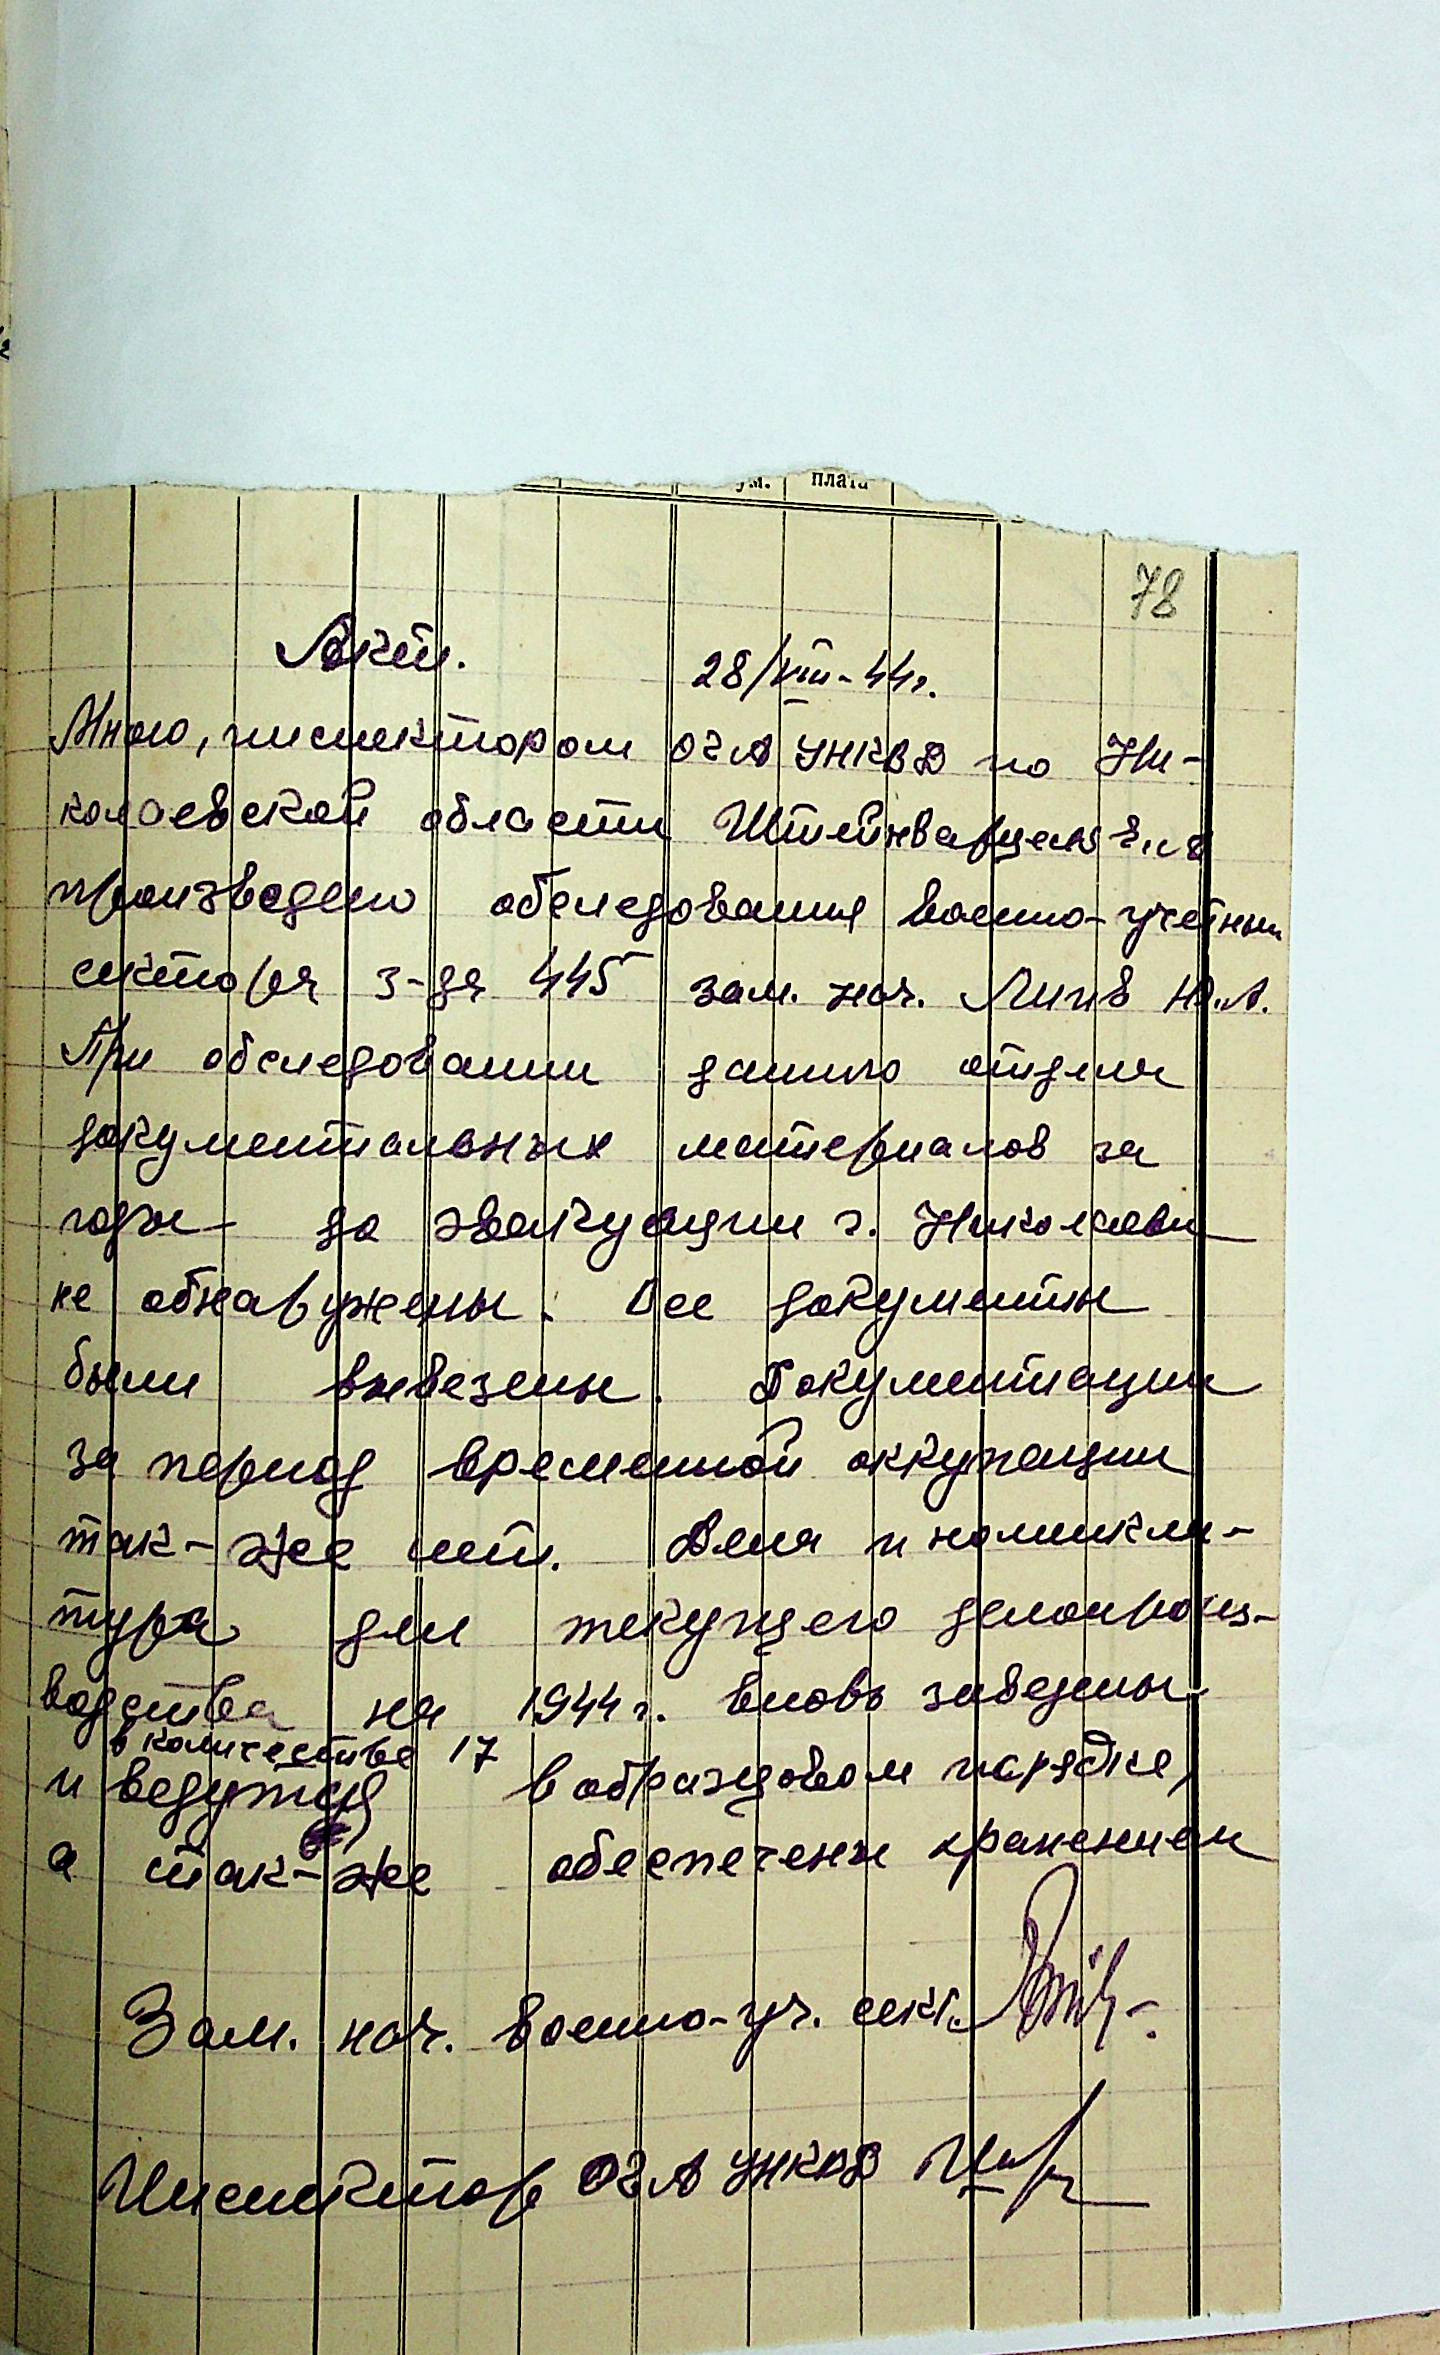 ум. плата
78
Акт.
28/VIII-44г.
Мною, инспектором ОГА УНКВД по Ни-
колаевской области Штейнварцем
произведено обследования военно-учетным
сектора з-да 445 зам. нач. Ю.А.
При обследовании данного отдела
документальных материалов за
годы до эвакуации г. Николаева
не обнаружены. Все документы
были вывезены. Документации
за период временной оккупации
так-же нет. Дела и номинкла-
тура для текущего делопроиз-
водства на 1944 г. вновь заведены
в количестве 17
и ведутся в образцовом порядке,
а так-же обеспечены хранением
Зам. нач. военно-уч. сект.
Инспектор ОГА УНКВД